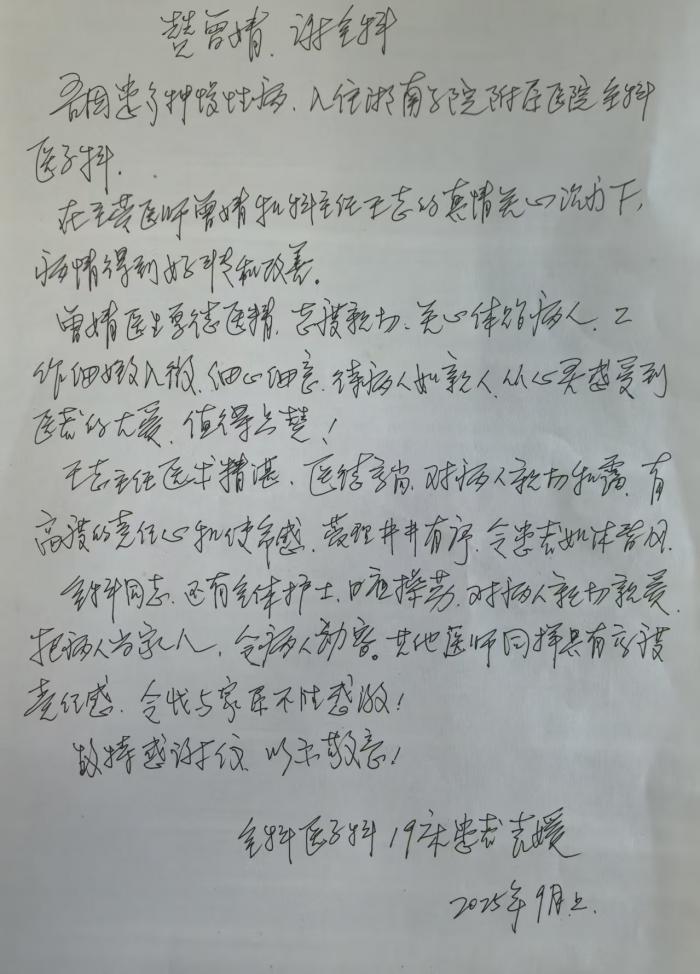 赞曾婧、谢全科
吾因患多种慢性病、入住湘南学院附属医院全科
医学科.
在主管医师曾婧和科主任王志的真情关心治疗下,
病情得到好转和改善。
曾婧医生厚德医精、态度亲切、关心体贴病人、工
作细致入微、细心细意、待病人如亲人、从心灵感受到
医者的大爱、值得点赞!
王志主任医术精湛、医德高尚、对病人亲切和蔼、有
高度的责任心和使命感、管理井井有序、令患者如沐春风.
全科同志、还有全体护士、日夜操劳、对病人亲切亲爱、
把病人当家人、令病人动容。其他医师同样具有高度
责任感、令我与家属不胜感激!
故特感谢 以示敬意!
全科医学科19床患者袁媛
2025年9月上.